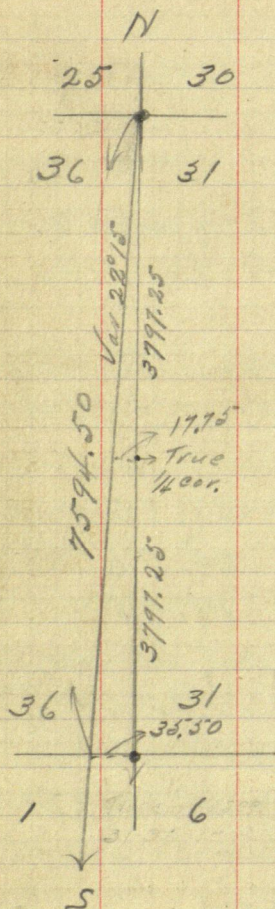 N
25 30
36 31
Var 22°15
3797.25
7594.50
17.75
True
1/4 cor.
3797.25
36 31
35.50
1 6
S